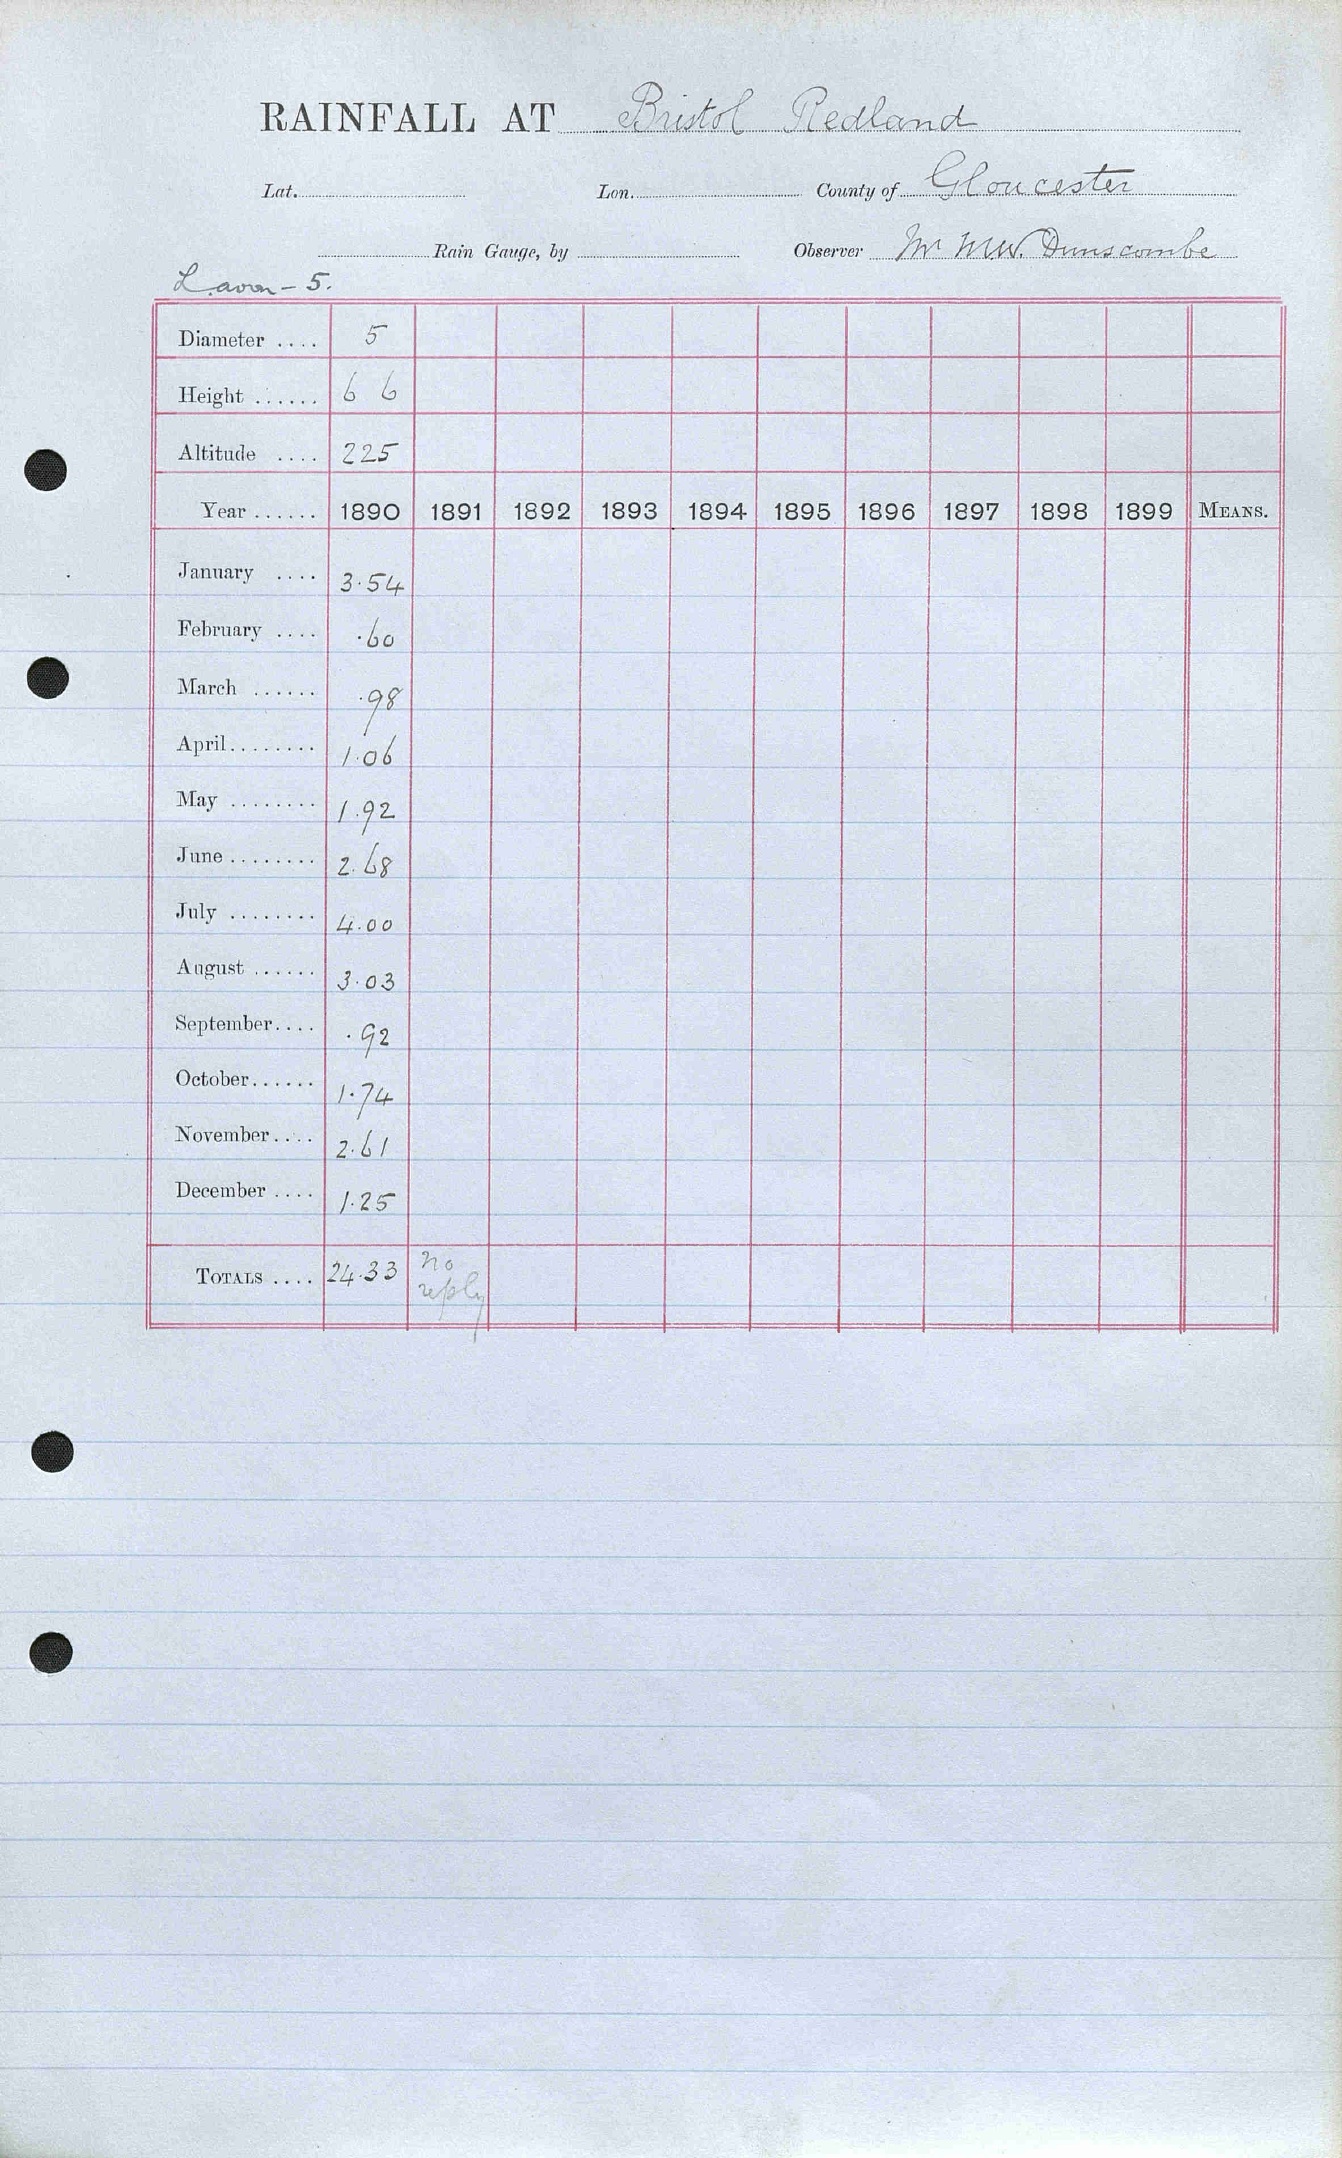 RAINFALL AT Bristol Redland
Lat. Lon. County of Gloucester
Rain Gauge, by Observer Mr M.W. Dunscombe
L. avon - 5.
Diameter .... 5
Height ...... 6 6
Altitude .... 225
Year ...... 1890 1891 1892 1893 1894 1895 1896 1897 1898 1899 MEANS.
January .... 3.54
February .... .60
March ...... .98
April........ 1.06
May ........ 1.92
June ........ 2.68
July ........ 4.00
August ...... 3.03
September.... .92
October...... 1.74
November.... 2.61
December .... 1.25
TOTALS .... 24.33 no reply